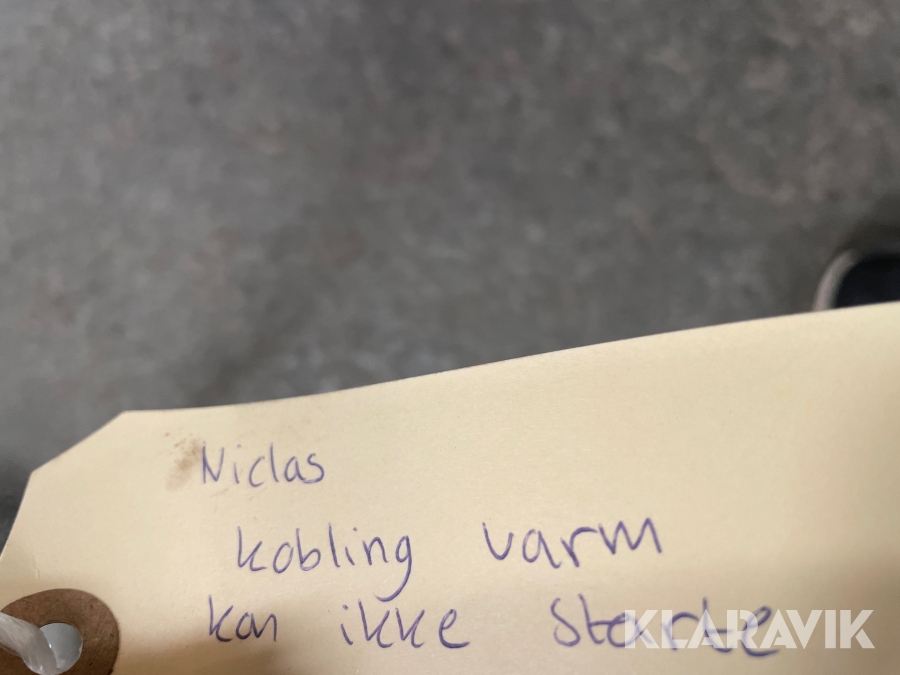 Niclas
kobling varm
kan ikke starte
KLARAVIK